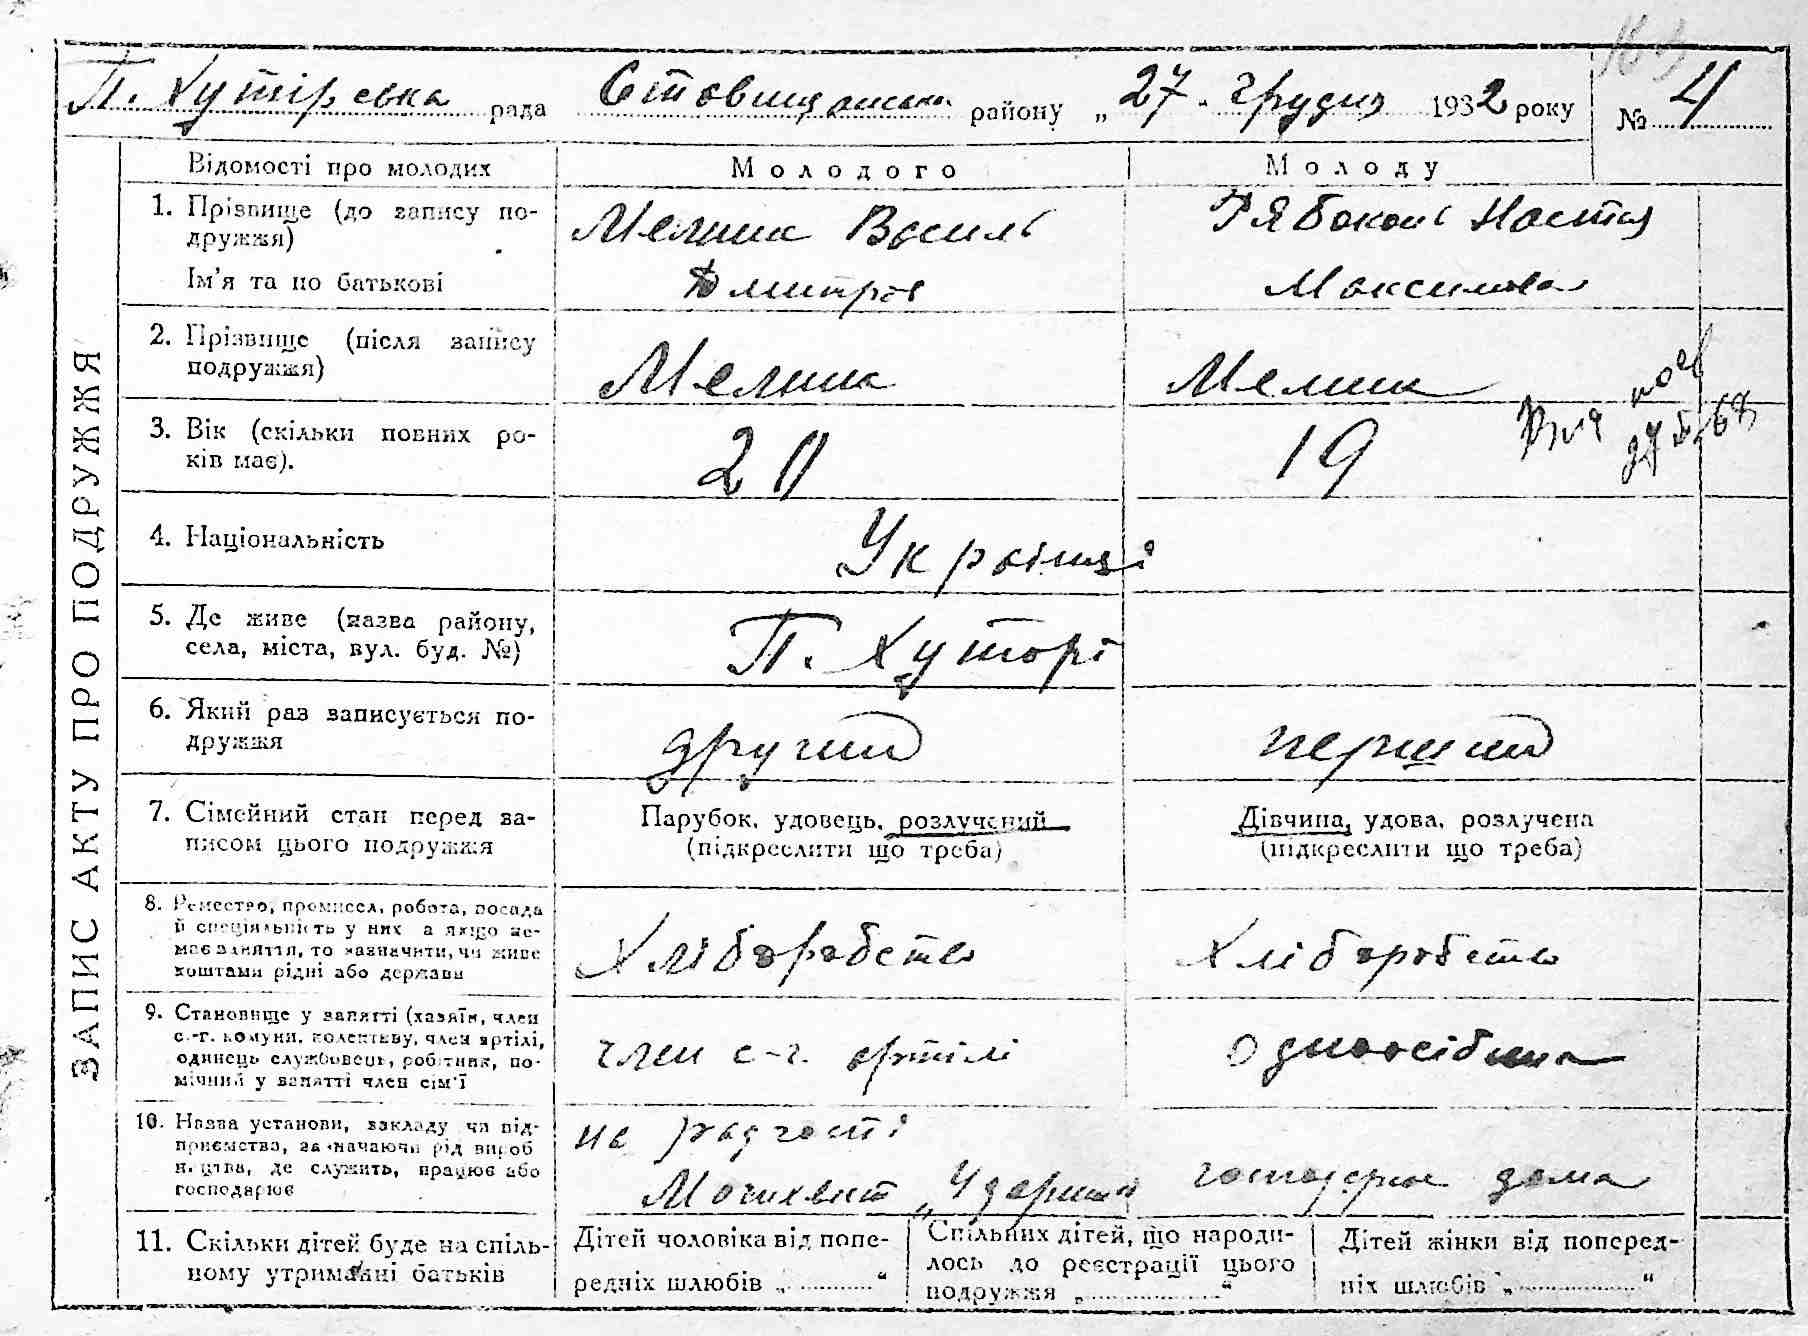 П. Хутірська рада Ставищанська району „27" грудня 1932 року № 4
ЗАПИС АКТУ ПРО ПОДРУЖЖЯ
Відомості про молодих Молодого Молоду
1. Прізвище (до запису по-
дружжя)
Ім'я та по батькові
Мельник Василь
Дмитрів
Рябоконь Настя
Максимова
2. Прізвище (після запису
подружжя)
Мельник
Мельник
3. Вік (скільки повних ро-
ків має).
20
19
4. Національність
Українці
5. Де живе (назва району,
села, міста, вул. буд. №)
П. Хуторі
6. Який раз записується по-
дружжя
другий
перший
7. Сімейний стан перед за-
писом цього подружжя
Парубок, удовець, розлучений
(підкреслити що треба)
Дівчина, удова, розлучена
(підкреслити що треба)
8. Ремество, промисел, робота, посада
й спеціяльність у них а якщо не-
має заняття, то зазначити, чи живе
коштами рідні або держави
Хліборобство
Хліборобство
9. Становище у занятті (хазяїн, член
с.-г. комуни, колективу, член артілі,
одинець службовець, робітник, по-
мічний у занятті член сім'ї
член с-г. артілі
одноосібниця
10. Назва установи, закладу чи під-
приємства, зазначаючи рід вироб
ництва, де служить, працює або
господарює
на
„Ударник
господарює дома
11. Скільки дітей буде на спіль-
ному утриманні батьків
Дітей чоловіка від попе-
редніх шлюбів „ “
Спільних дітей, що народи-
лось до реєстрації цього
подружжя „ “
Дітей жінки від поперед-
ніх шлюбів „ “